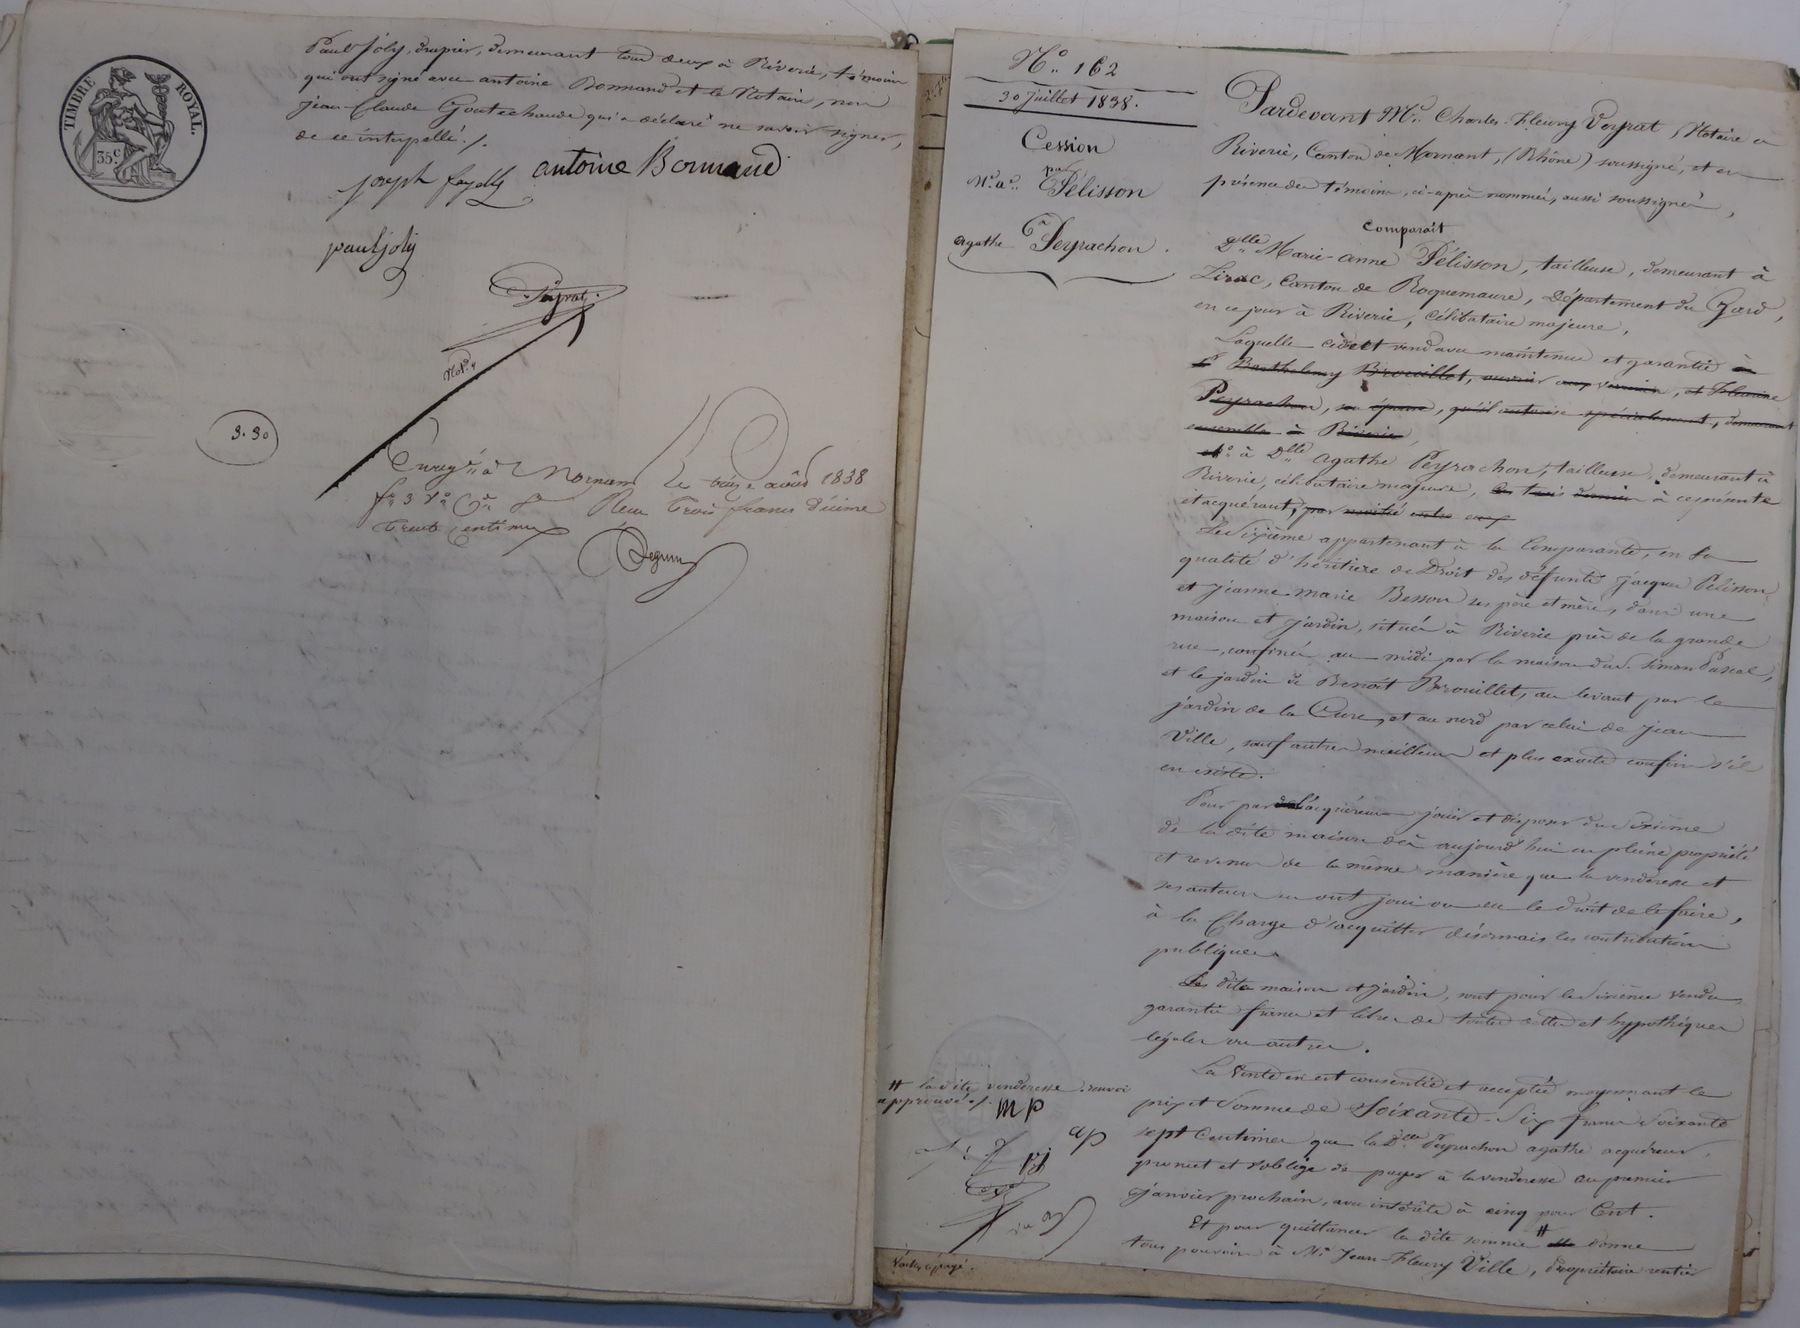 TIMBRE ROYAL.
35c
Paul Joly, drapier, demeurant tous deux à Riverie, témoins
qui ont signé avec antoine Bonnand et le Notaire, non
jean-Claude Goutechaude qui a déclaré ne savoir signer,
de ce interpellé ./.
joseph fayolle antoine Bonnand
paul joly
Veyrat
Not.re
3.30
Enreg.té à Mornant le treize août 1838
f.o 3 V.o C.e 8 Reçu trois francs décime
trente centimes
N.o 162
30 juillet 1838.
Cession
par
M.e a.ne Pélisson
à
agathe Peyrachon.
Pardevant M.e Charles-Fleury Veyrat, Notaire à
Riverie, Canton de Mornant, (Rhône) soussigné, et en
présence des témoins, ci-après nommés, aussi soussignés,
Comparait
D.lle Marie-anne Pélisson, tailleuse, demeurant à
Lirac, Canton de Roquemaure, Département du Gard,
en ce jour à Riverie, célibataire majeure,
Laquelle cède et vend avec maintenue et garantie à
Barthelemy Brouillet, ouvrier aux verreries, et Fleurine
Peyrachon, son épouse, qu'il autorise spécialement, demeurant
ensemble à Riverie,
à D.lle agathe Peyrachon, tailleuse, demeurant à
Riverie, célibataire majeure, les trois derniers à ce présente
et acquérant, par moitié entre eux
Le Sixième appartenant à la Comparante, en sa
qualité d'héritière de Droit des défunts jacques Pélisson
et jeanne-marie Besson ses père et mère, dans une
maison et jardin, situés à Riverie près de la grande
rue, confinés au midi par la maison du s. Simon Pascal,
et le jardin de Benoît Brouillet, au levant par le
jardin de la Cure, et au nord par celui de jean
Ville, sauf autres meilleurs et plus exacts confins s'il
en existe.
Pour par l'acquéreur jouir et disposer du Sixième
de la dite maison dès aujourd'hui en pleine propriété
et revenus de la même manière que la venderesse et
ses auteurs en ont joui ou eu le droit de le faire,
à la Charge d'acquitter désormais les contributions
publiques.
Les dits maison et jardin, sont pour le Sixième vendu,
garantis francs et libres de toutes dettes et hypothèques
légales ou autres.
La Vente en est consentie et acceptée moyennant le
prix et Somme de Soixante-Six francs Soixante
sept Centimes que la D.lle Peyrachon agathe acquéreur,
promet et s'oblige de payer à la venderesse au premier
janvier prochain, avec intérêts à cinq pour Cent.
Et pour quittancer la dite somme # donne
tous pouvoirs à M.r Jean-Fleury Ville, propriétaire rentier
# la dite venderesse. renvoi
approuvé ./.
mp
ap
pj